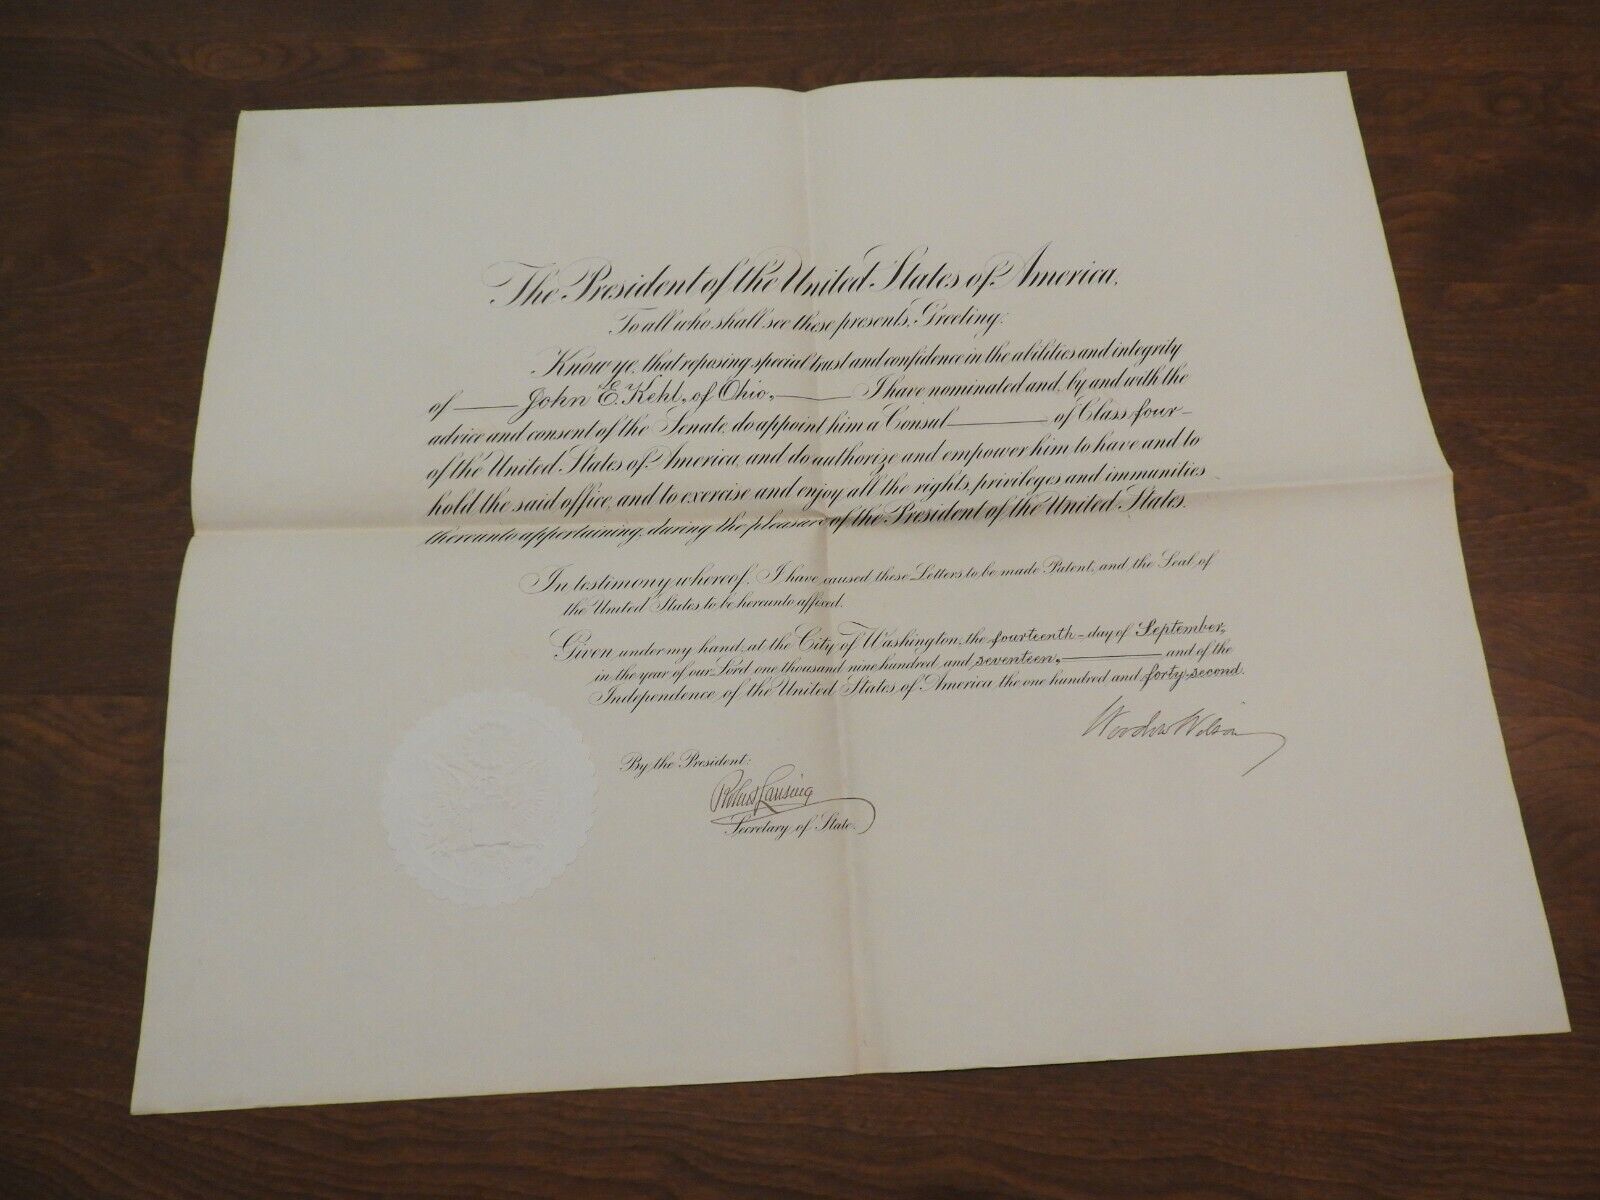 The President of the United States of America,
To all who shall see these presents, Greeting:
Know ye, that reposing special trust and confidence in the abilities and integrity
of John E. Kehl, of Ohio, I have nominated and, by and with the
advice and consent of the Senate, do appoint him a Consul of Class four
of the United States of America, and do authorize and empower him to have and to
hold the said office, and to exercise and enjoy all the rights, privileges and immunities
thereunto appertaining, during the pleasure of the President of the United States.
In testimony whereof, I have caused these Letters to be made Patent, and the Seal of
the United States to be hereunto affixed.
Given under my hand, at the City of Washington, the fourteenth day of September,
in the year of our Lord one thousand nine hundred and seventeen, and of the
Independence of the United States of America the one hundred and forty-second.
Woodrow Wilson
By the President:
Robert Lansing
Secretary of State.